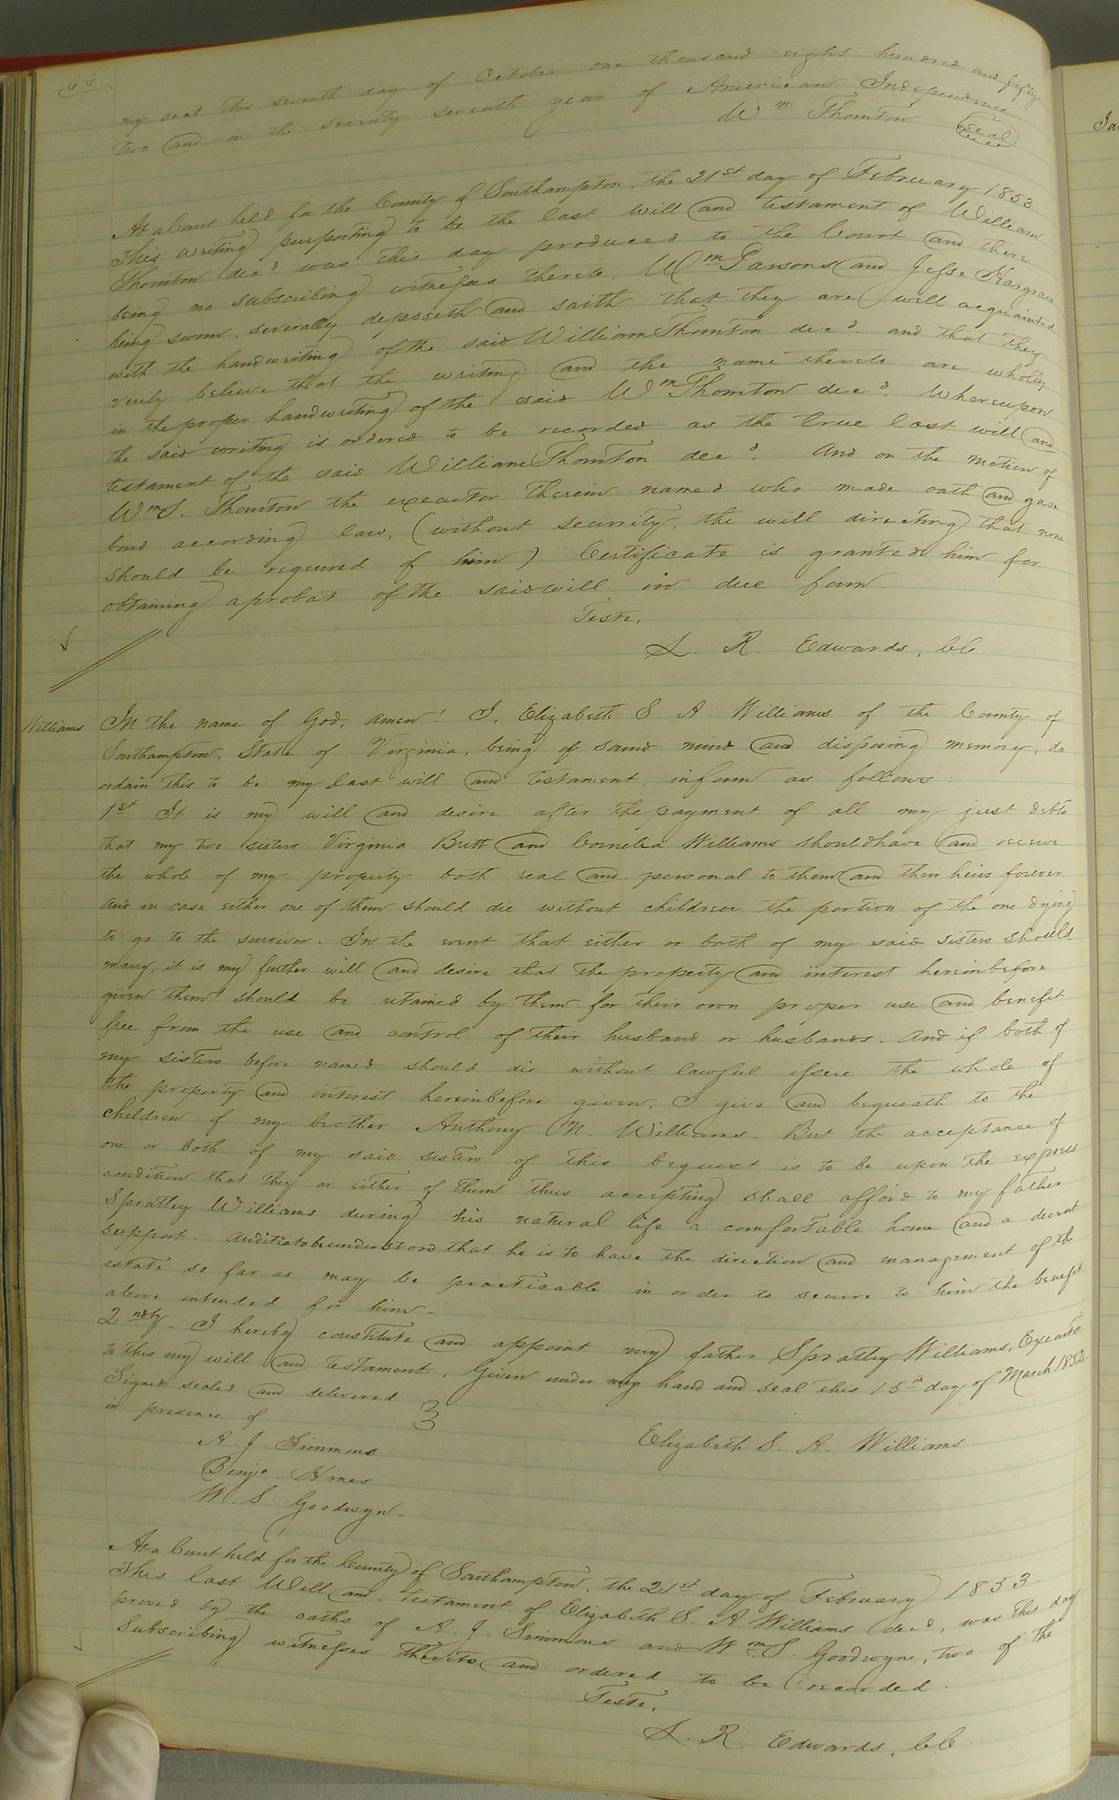 64
my seal this seventh day of October one thousand eight hundred and fifty
two and in the seventy seventh year of American Independence.
Wm Thornton Seal
At a Court held for the County of Southampton, the 21st day of February 1853
This writing purporting to be the last will and testament of William
Thornton decd was this day produced to the Court and there
being no subscribing witnesses thereto, Wm Parsons and Jesse Hargrave
being sworn, severally deposeth and saith that they are well acquainted
with the handwriting of the said William Thornton decd. and that they
verily believe that the writing and the name thereto are wholly
in the proper handwriting of the said Wm Thornton decd. Whereupon
the said writing is ordered to be recorded as the true last will and
testament of the said William Thornton decd. And on the motion of
Wm S. Thornton the executor therein named who made oath and gave
bond according law, (without security, the will directing that none
should be required of him) Certificate is granted him for
obtaining a probat of the said will in due form.
Teste,
L. R. Edwards, CC.
Williams
In the name of God, amen! I, Elizabeth S A Williams of the County of
Southampton, State of Virginia, being of sound mind and disposing memory, do
ordain this to be my last will and testament in form as follows:
1st It is my will and desire after the payment of all my just debts
that my two sisters Virginia Britt and Cornelia Williams should have and receive
the whole of my property both real and personal to them and their heirs forever
and in case either one of them should die without children the portion of the one dying
to go to the survivor. In the event that either or both of my said sisters should
marry, it is my further will and desire that the property and interest hereinbefore
given them should be retained by them for their own proper use and benefit
free from the use and control of their husband or husbands. And if both of
my sisters before named should die without lawful issue the whole of
the property and interest hereinbefore given, I give and bequeath to the
children of my brother Anthony N. Williams. But the acceptance of
one or both of my said sisters of this bequest is to be upon the express
condition that they or either of them thus accepting shall afford to my father
Sprattey Williams during his natural life a comfortable home and a decent
support. And it is to be understood that he is to have the direction and management of the
estate so far as may be practicable in order to secure to him the benefit
above intended for him.
2ndly. I hereby constitute and appoint my father Sprattey Williams, Executor
to this my will and testament. Given under my hand and seal this 15th day of March 1852.
Signed sealed and delivered
in presence of
Elizabeth S. A. Williams
A. J. Simmons
Benja. Hines
W. S. Goodwyn.
At a Court held for the County of Southampton, the 21st day of February 1853
This last Will and testament of Elizabeth S. A Williams decd, was this day
proved by the oaths of A. J. Simmons and Wm S. Goodwyn, two of the
Subscribing witnesses thereto and ordered to be recorded.
Teste,
L. R Edwards, CC